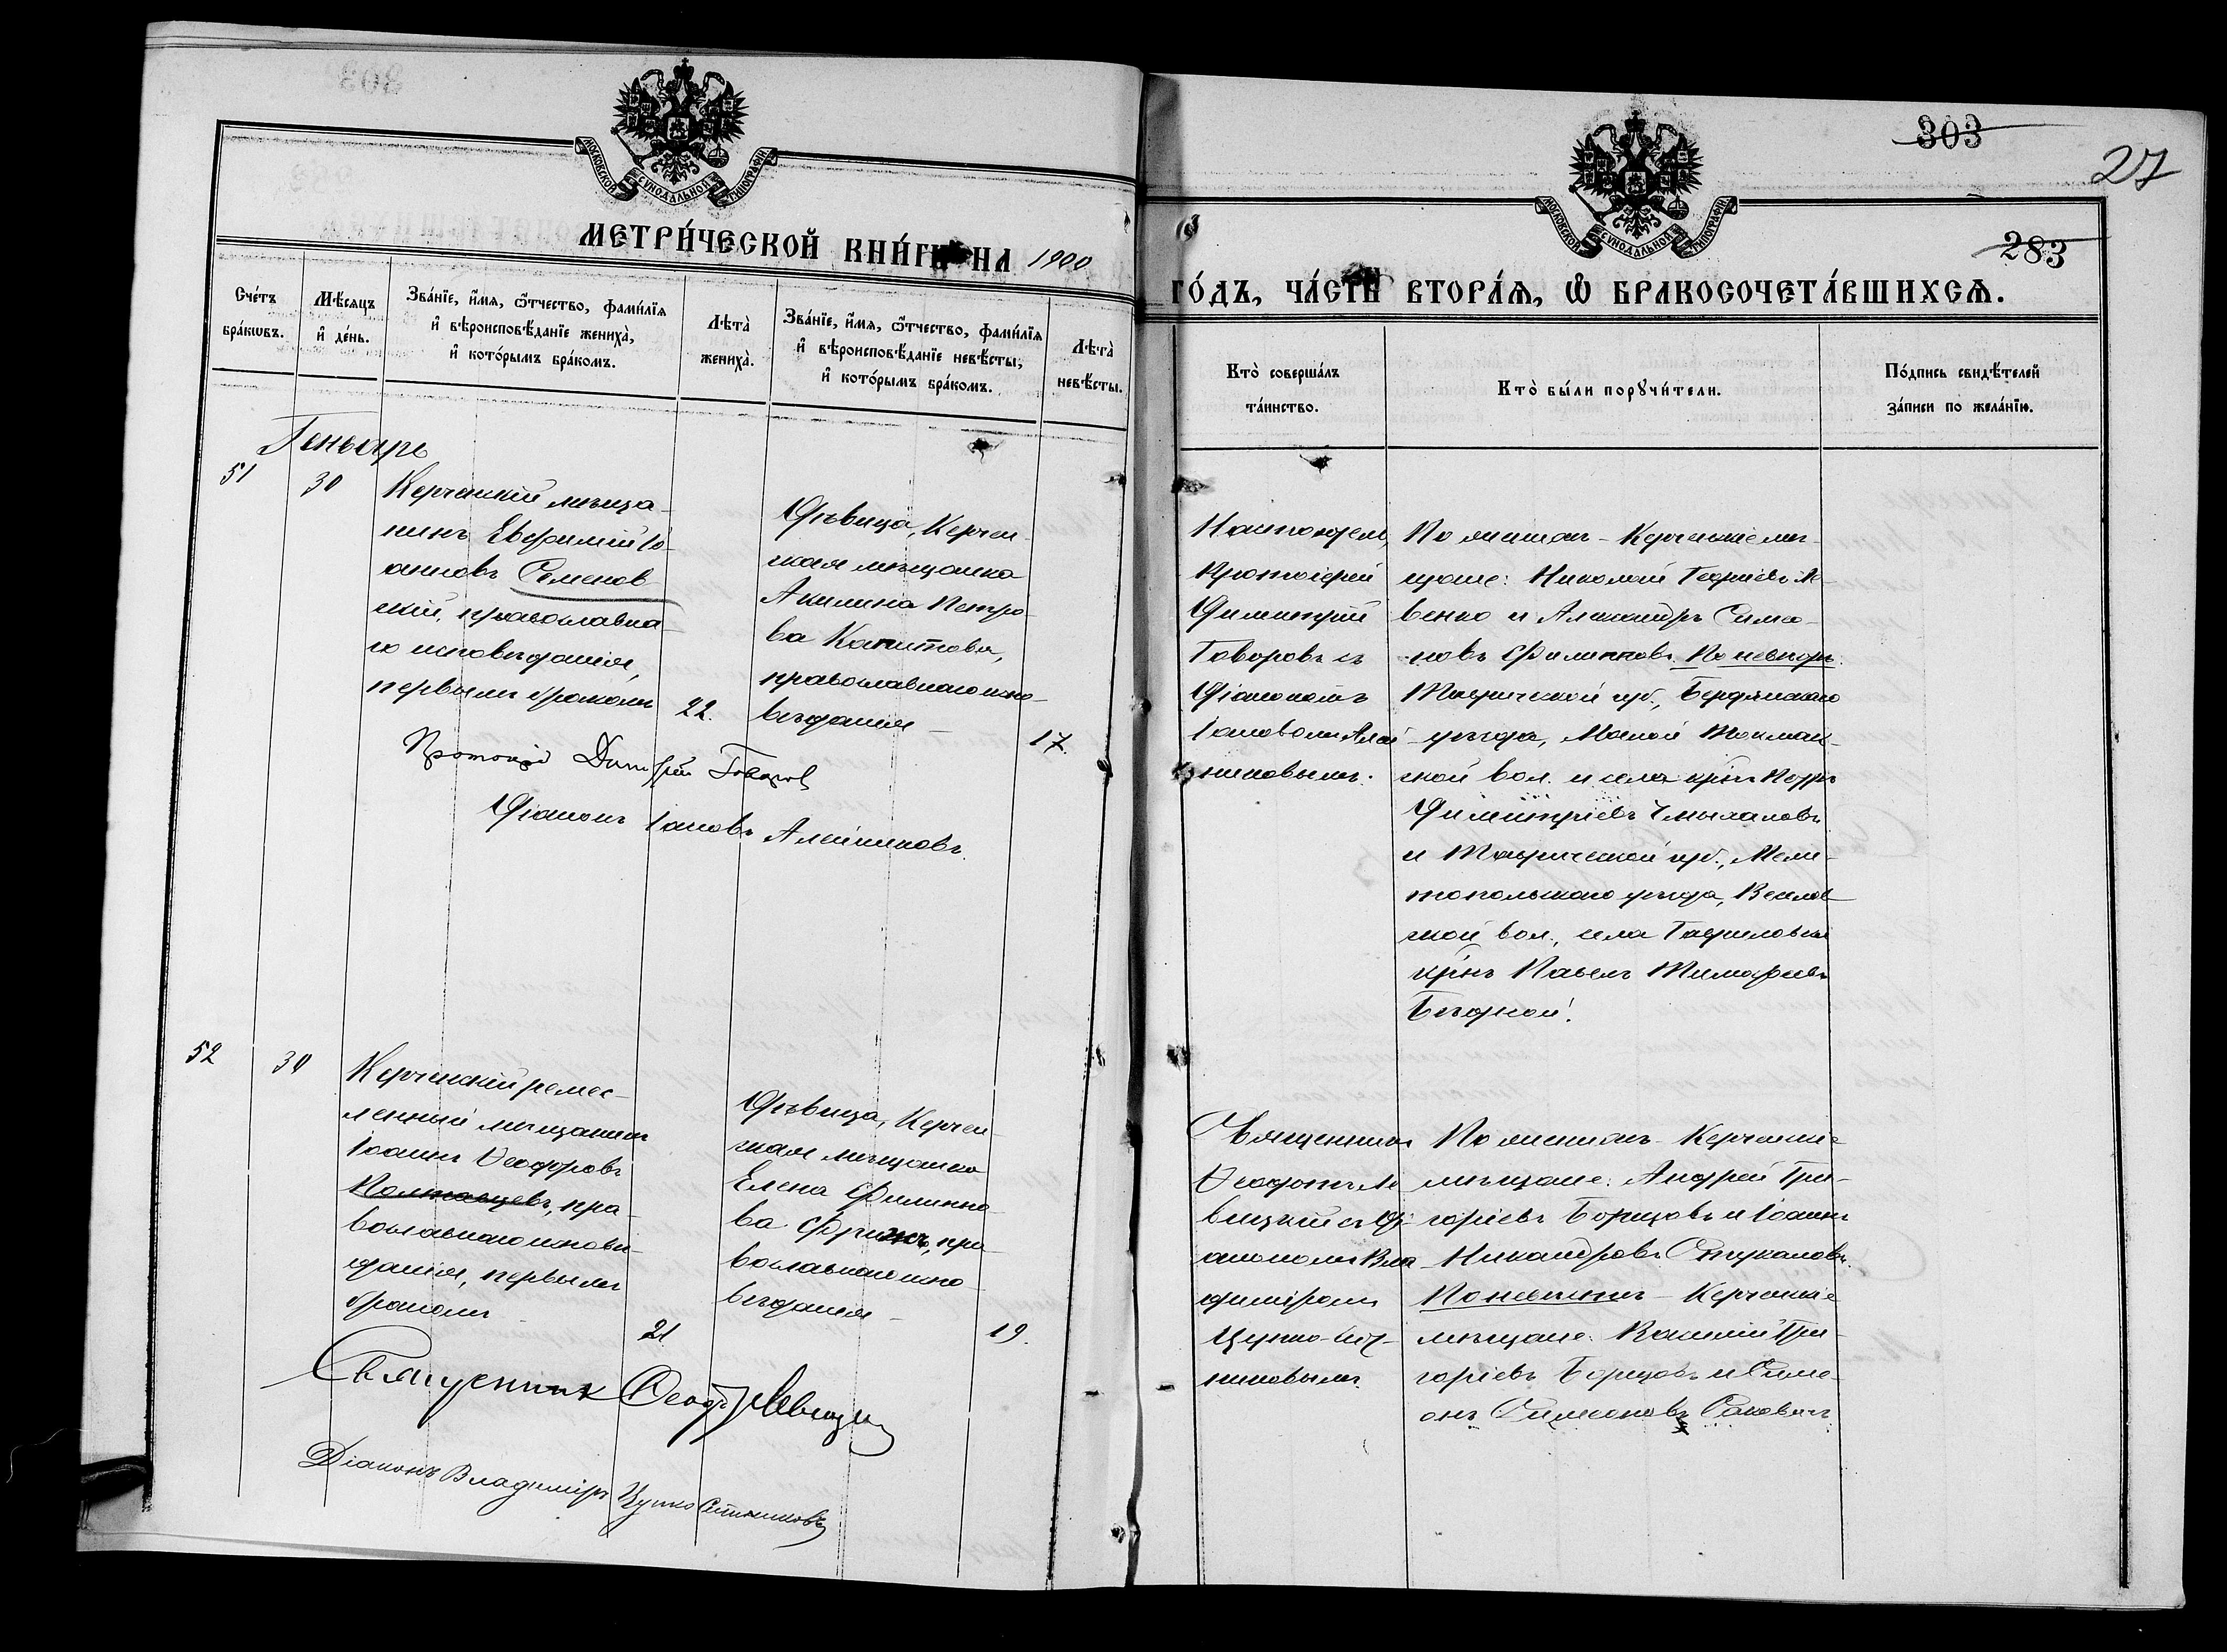 303
27
283
МОСКОВСКОЙ СУНОДАЛЬНОЙ ТИПОГРАФІИ
МОСКОВСКОЙ СУНОДАЛЬНОЙ ТИПОГРАФІИ
МЕТРИ́ЧЕСКОЙ КНИ́ГИ НА 1900
ГО́ДЪ, ЧА́СТИ ВТОРА́Ѧ, Ѽ БРАКОСОЧЕТА́ВШИХСѦ.
Сче́тъ
бра́кѡвъ.
Мѣ́сѧцъ
и҆ де́нь.
Зва́нїе, и҆́мѧ, ѻ҆́тчество, фами́лїѧ
и҆ вѣроисповѣ́данїе жениха̀,
и҆ кото́рымъ бра́комъ.
Лѣта̀
жениха̀.
Зва́нїе, и҆́мѧ, ѻ҆́тчество, фами́лїѧ
и҆ вѣроисповѣ́данїе невѣ́сты,
и҆ кото́рымъ бра́комъ.
Лѣта̀
невѣ́сты.
Кто̀ соверша́лъ
та́инство.
Кто̀ бы́ли порꙋчи́тели.
По́дпись свидѣ́телей
за́писи по жела́нїю.
Генварь
51
30
Керченскій мѣща-
нинъ Евфимій Іо-
анновъ Семенов-
скій, православна-
го исповѣданія,
первымъ бракомъ
22.
Дѣвица, Керчен-
ская мѣщанка
Акилина Петро-
ва Капитова,
православнаго испо-
вѣданія
17.
Настоятель,
Протоіерей
Димитрій
Говоровъ съ
Діакономъ
Іаковомъ Алей-
никовымъ.
По женихѣ - Керченскіе мѣ-
щане: Николай Георгіевъ Ле-
венко и Александръ Симео-
новъ Филипповъ. По невѣстѣ
Таврической губ., Бердянскаго
уѣзда, Малой Токмак-
ской вол. и села крнъ Петръ
Димитріевъ
и Таврической губ., Мели-
топольскаго уѣзда, Веселов-
ской вол., села Гавриловки
крнъ Павелъ Тимофеевъ
Бѣдной.
Протоіер Димитрій Говоров
Діаконъ Іаковъ Алейниковъ.
52
30
Керченскій ремес-
ленный мѣщанинъ
Іоаннъ Ѳеодоровъ
Полтавцевъ, пра-
вославнаго исповѣ-
данія, первымъ
бракомъ
21.
Дѣвица, Керчен-
ская мѣщанка
Елена Филиппо-
ва пра-
вославнаго испо-
вѣданія
19.
Священникъ
Ѳеодотъ Ле-
вицкій съ Ді-
акономъ Вла-
диміромъ
Цупко-Сит-
никовымъ.
По женихѣ - Керченскіе
мѣщане: Андрей Гри-
горіевъ Борцовъ и Іоаннъ
Никандровъ Стукаловъ.
По невѣстѣ - Керченскіе
мѣщане: Василій Гри-
горіевъ Борцовъ и Симе-
онъ Симеоновъ
Священник Ѳеодотъ Левицкій
Діаконъ Владиміръ Цупко Ситниковъ